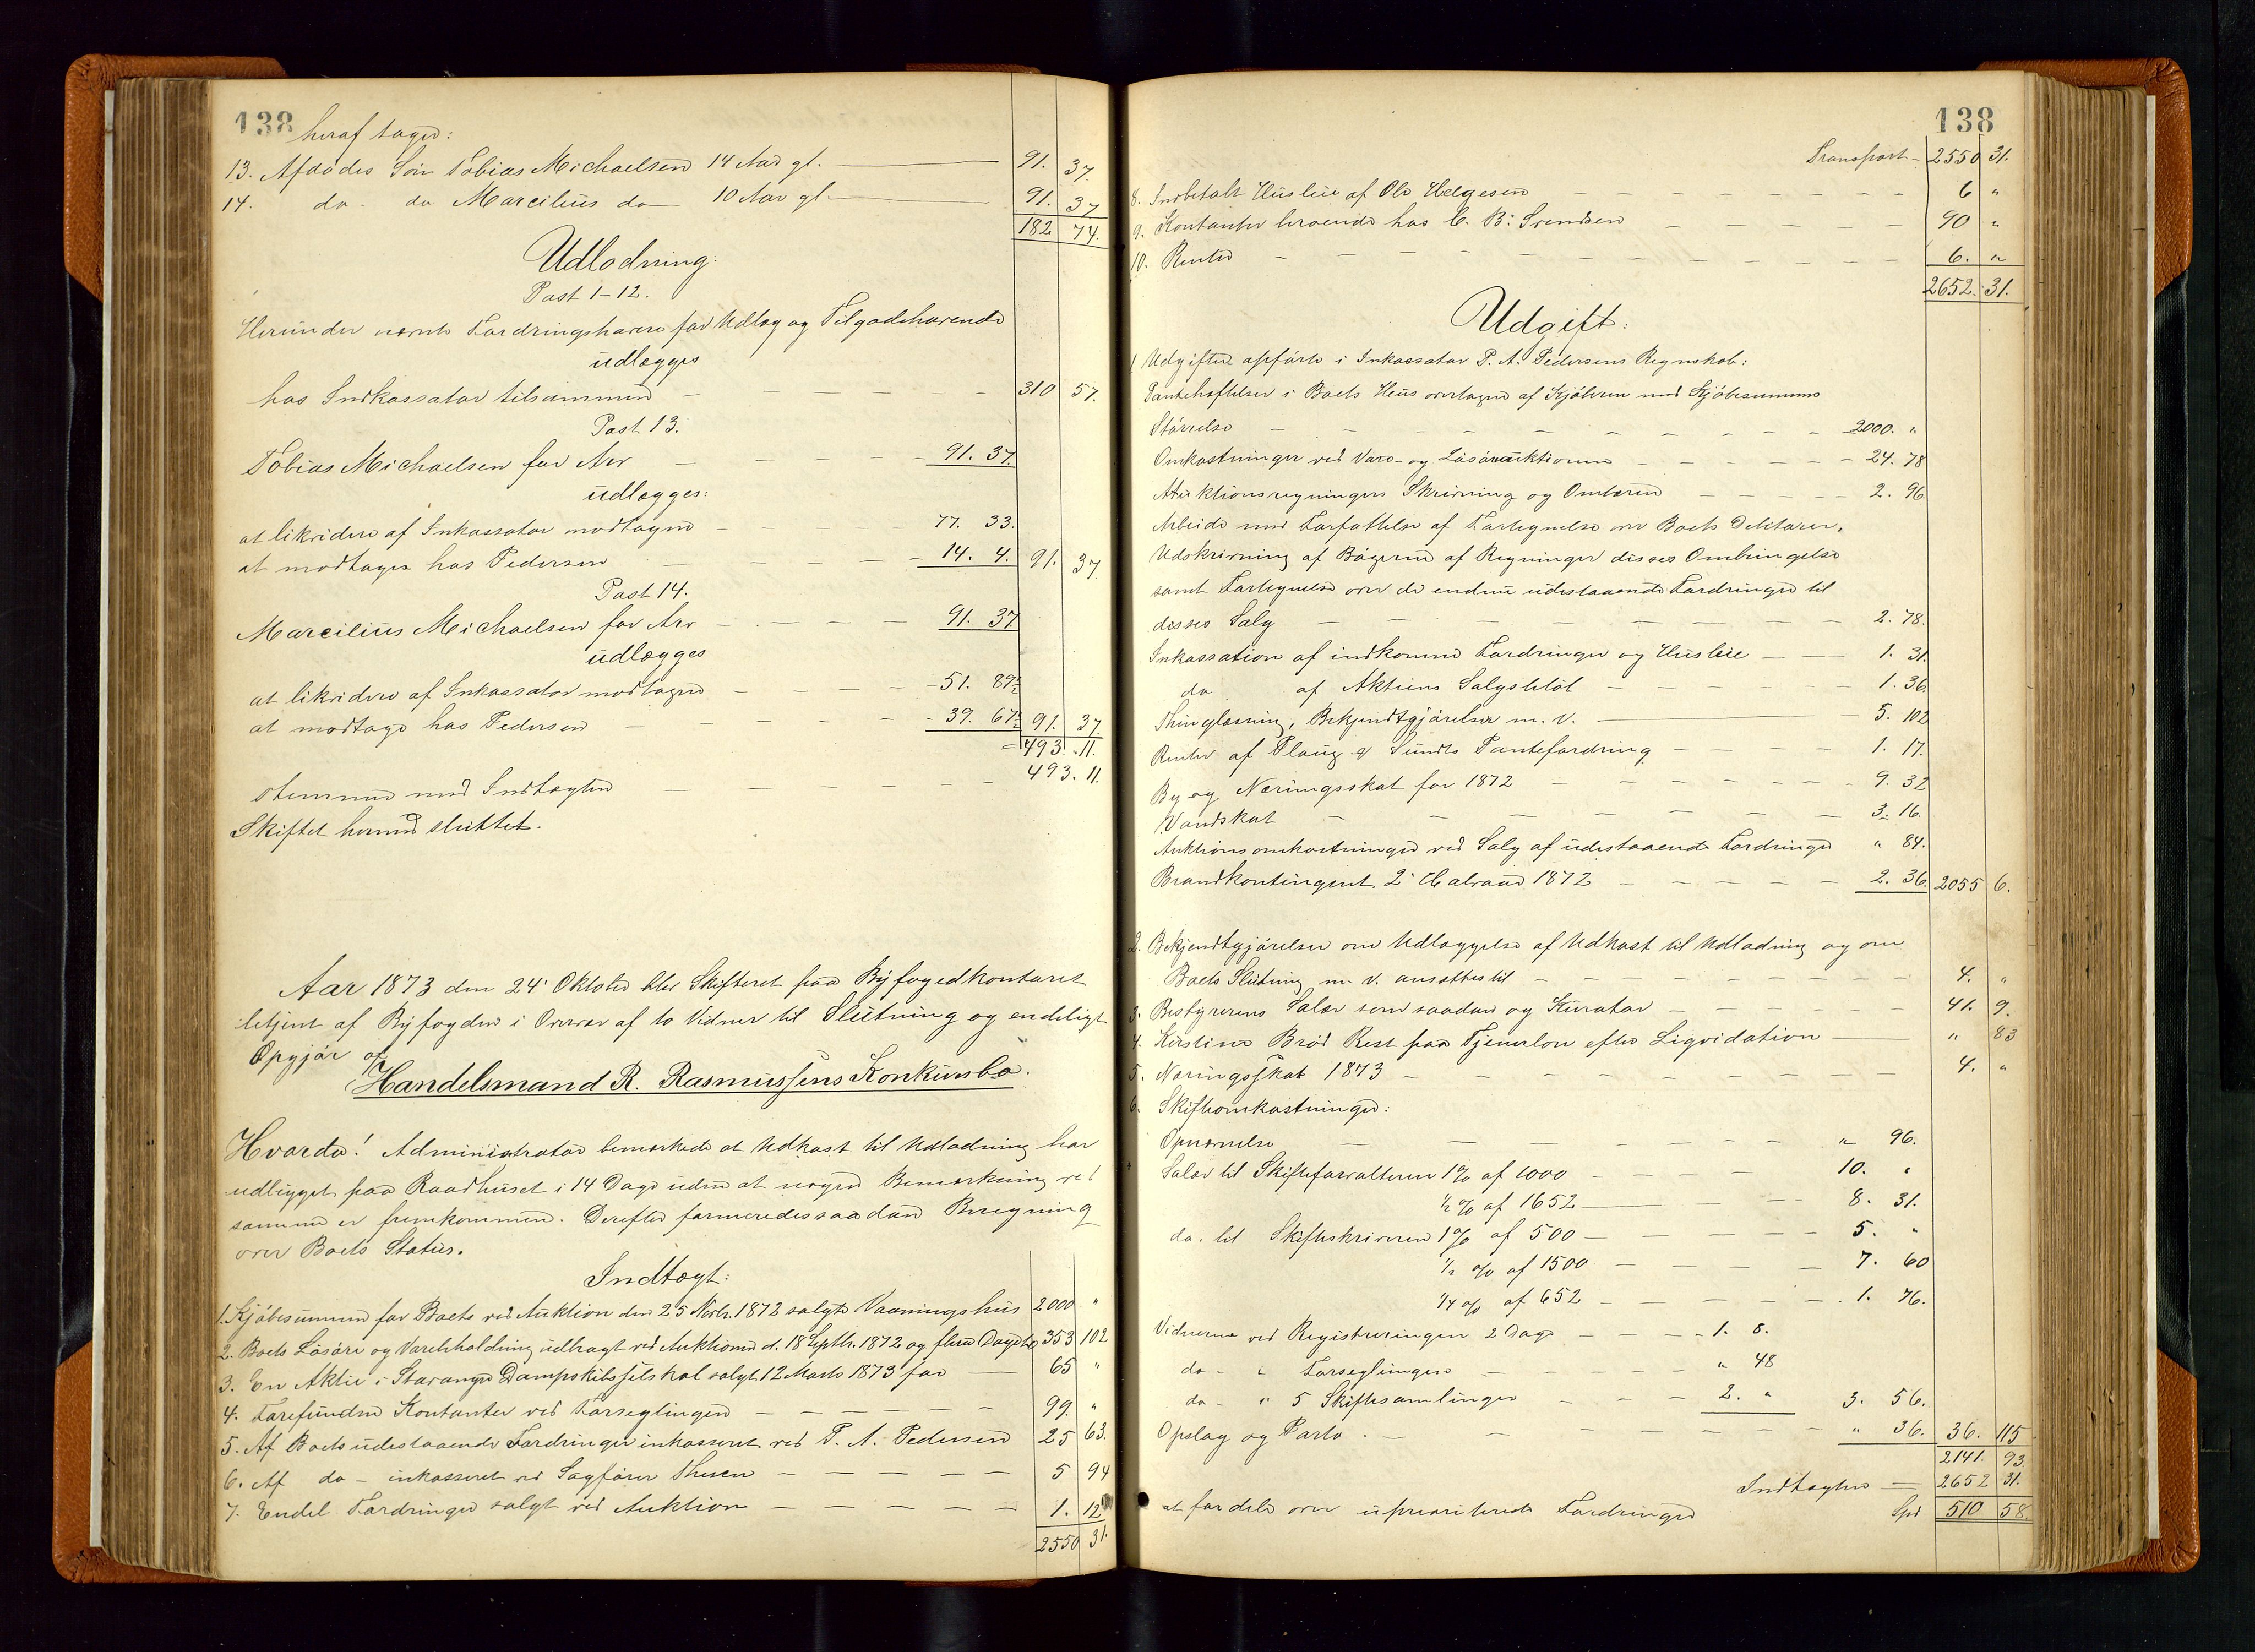 138
heraf tager:
13. Afdødes Søn Tobias Michaelsen 14 Aar gl. — 91. 37.
14. do. do Marcilius do 10 Aar gl. — 91. 37
182 74.
Udlodning:
Post 1-12.
Herunder nævnte Fordringshavere for Udlæg og Tilgodehavende
udlægges
hos Indkassator tilsammen — 310 57.
Post 13.
Tobias Michaelsen for Arv — 91. 37.
udlægges:
at likvidere af Inkassator modtagne — 77. 33.
at modtages hos Pedersen — 14. 4. 91. 37.
Post 14.
Marcilius Michaelsen for Arv — 91. 37
udlægges
at likvidere af Inkassator modtagne — 51. 89½
at modtage hos Pedersen — 39. 67½ 91. 37
= 493. 11.
stemmer med Indtægten — 493. 11.
Skiftet hermed sluttet.
Aar 1873 den 24' Oktober blev Skifteret paa Byfogedkontoret
betjent af Byfogden i Overvær af to Vidner til Slutning og endeligt
Opgjør af
Handelsmand R. Rasmussens Konkursbo.
Hvorda! Administrator bemærkede at Udkast til Udlodning har
udligget paa Raadhuset i 14 Dage uden at nogen Bemærkning ved
samme er fremkommen. Derefter formeredes saadan Beregning
over Boets Status.
Indtægt:
1. Kjøbesummen for Boets ved Auktion den 25 Novbr. 1872 solgte Vaaningshus 2000 "
2. Boets Løsøre og Varebeholdning udbragt ved Auktionen d. 18 Septbr. 1872 og flere Dage til 353 102
3. En Aktie i Stavanger Dampskibsselskab solgt 12 Marts 1873 for — 65 "
4. Forefunden Kontanter ved Forseglingen — 99. "
5. Af Boets udestaaende Fordringer inkasseret ved P. A. Pedersen 25 63.
6. Af do — inkasseret ved Sagfører Thesen — 5 94
7. Endel Fordringer solgt ved Auktion — 1. 12
2550 31.
138
Transport — 2550 31.
8. Indbetalt Husleie af Ole Helgesen — 6 "
9. Kontanter beroende hos C. B. Svendsen — 90 "
10. Renter — 6. "
2652. 31.
Udgift:
1 Udgifter opførte i Inkassator P. A. Pedersens Regnskab:
Pantehæftelser i Boets Hus overtagne af Kjøberen med Kjøbesummens
Størrelse — 2000. "
Omkostninger ved Vare- og Løsøreauktionen — 24. 78
Auktionsregningers Skrivning og Ombæren — 2. 96.
Arbeide med Forfattelse af Fortegnelse over Boets Debitorer,
Udskrivning af Bøgerne af Regninger disses Ombringelse
samt Fortegnelse over de endnu udestaaende Fordringer til
disses Salg — 2. 78.
Inkassation af indkomne Fordringer og Husleie — 1. 31.
do af Aktiens Salgsbeløb — 1. 36.
Thinglæsning, Bekjendtgjørelser m. v. — 5. 102
Renter af Ploug & Sundts Pantefordring — 1. 17.
By og Næringsskat for 1872 — 9. 32
Vandskat — 3. 16.
Auktionsomkostninger ved Salg af udestaaende Fordringer " 84.
Brandkontingent 2' Halvaar 1872 — 2. 36. 2055 6.
2. Bekjendtgjørelser om Udlæggelse af Udkast til Udlodning og om
Boets Slutning m. v. ansættes til — 4. "
3. Bestyrerens Salær som saadan og Kurator — 41. 9.
4. Kirstine Brød Rest paa Tjenerløn efter Liqvidation — " 83
5. Næringsskat 1873 — 4. "
6. Skifteomkostninger:
Opnævnelse — " 96.
Salær til Skifteforvalteren 1% af 1000 — 10. "
½ % af 1652 — 8. 31.
do. til Skifteskriveren 1% af 500 — 5. "
½ % af 1500 — 7. 60
¼ % af 652 — 1. 76.
Vidnerne ved Registreringen 2 Dage — 1. 8.
do — " Forseglingen — " 48
do — " 5 Skiftesamlinger — 2. " 3. 56.
Opslag og Porto. — " 36. 36. 115
2141. 93.
Indtægten — 2652 31.
at fordele over uprioriterede Fordringer Spd 510 58.